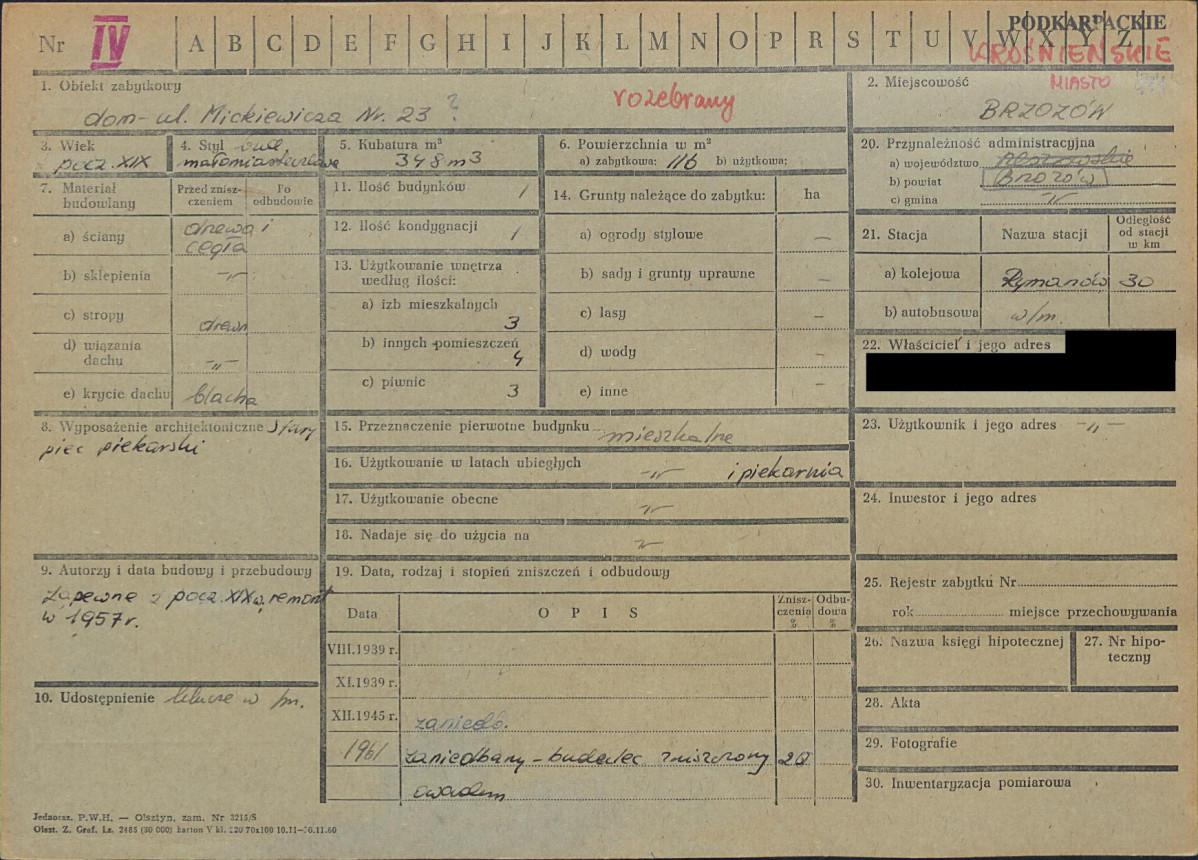 PODKARPACKIE
Nr IV A B C D E F G H I J K L M N O P R S T U V W X Y Z
KROŚNIEŃSKIE
1. Obiekt zabytkowy
dom - ul. Mickiewicza Nr. 23 ?
rozebrany
2. Miejscowość
MIASTO
BRZOZÓW
3. Wiek
pocz. XIX
4. Styl
małomiasteczkowe
5. Kubatura m³
348 m3
6. Powierzchnia w m²
a) zabytkowa: 116 b) użytkowa:
20. Przynależność administracyjna
a) województwo Rzeszowskie
b) powiat Brzozów
c) gmina -"-
7. Materiał budowlany
Przed zniszczeniem
Po odbudowie
a) ściany drewno i cegła
b) sklepienia -"-
c) stropy drewn
d) wiązania dachu -"-
e) krycie dachu blacha
11. Ilość budynków 1
12. Ilość kondygnacji 1
13. Użytkowanie wnętrza według ilości:
a) izb mieszkalnych 3
b) innych pomieszczeń 4
c) piwnic 3
14. Grunty należące do zabytku: ha
a) ogrody stylowe —
b) sady i grunty uprawne —
c) lasy —
d) wody —
e) inne —
21. Stacja
Nazwa stacji
Odległość od stacji w km
a) kolejowa Rymanów 30
b) autobusowa w/m.
22. Właściciel i jego adres
8. Wyposażenie architektoniczne stary
piec piekarski
15. Przeznaczenie pierwotne budynku mieszkalne
16. Użytkowanie w latach ubiegłych -"- i piekarnia
17. Użytkowanie obecne -"-
18. Nadaje się do użycia na -"-
23. Użytkownik i jego adres -"-
24. Inwestor i jego adres
9. Autorzy i data budowy i przebudowy
zapewne z pocz. XIX w, remont
w 1957 r.
10. Udostępnienie klucze w /m.
19. Data, rodzaj i stopień zniszczeń i odbudowy
Data
OPIS
Zniszczenia %
Odbudowa %
VIII.1939 r.
XI.1939 r.
XII.1945 r. zaniedb.
1961 zaniedbany - budulec zniszczony 20
owadem
25. Rejestr zabytku Nr
rok miejsce przechowywania
26. Nazwa księgi hipotecznej
27. Nr hipoteczny
28. Akta
29. Fotografie
30. Inwentaryzacja pomiarowa
Jednorаz. P.W.H. — Olsztyn, zam. Nr 3215/S
Olszt. Z. Graf. Lz. 2485 (30 000) karton V kl. 220 70x100 10.11—30.11.60